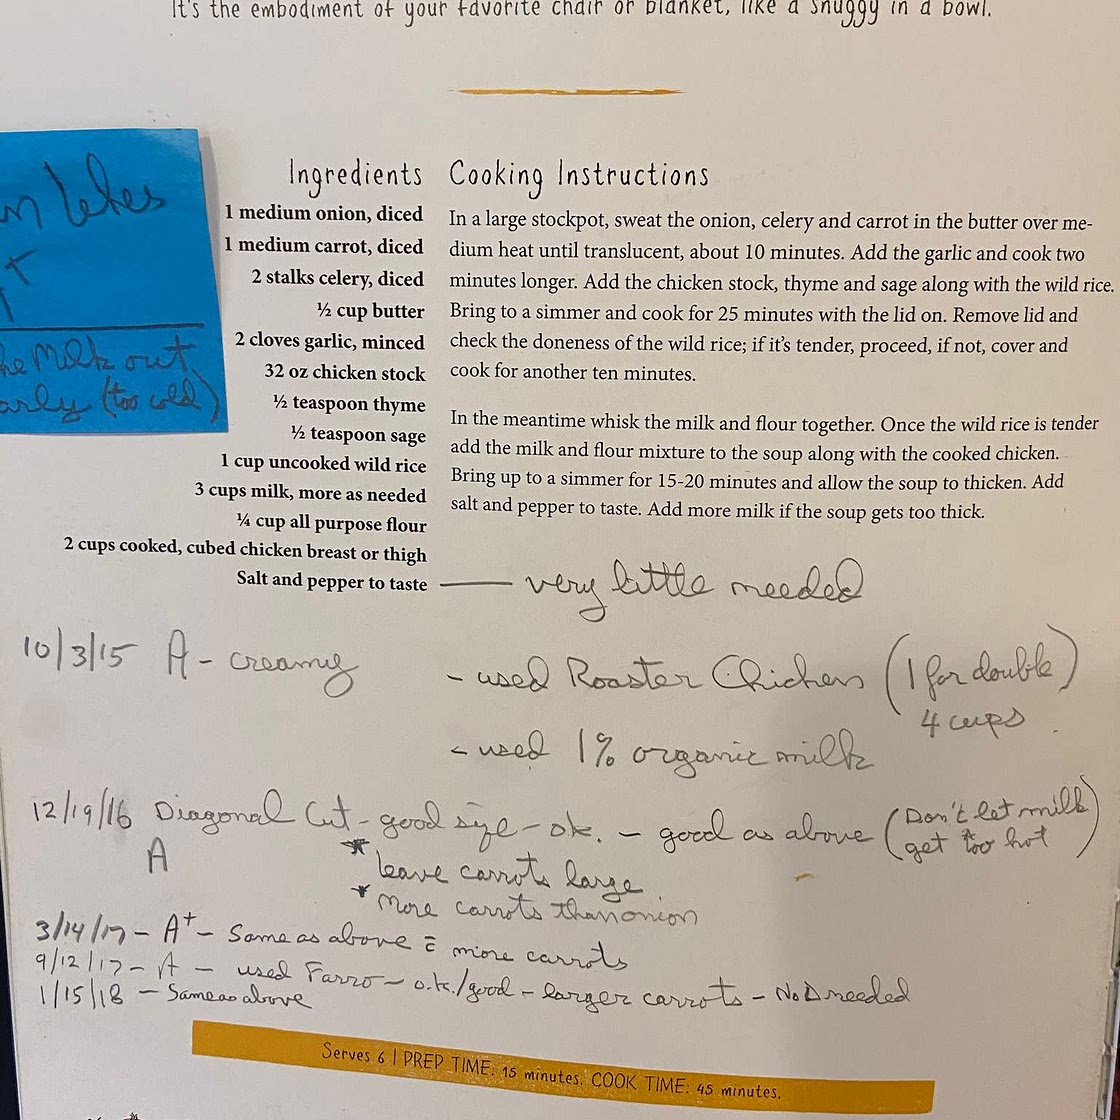 It's the embodiment of your favorite chair or blanket, like a snuggy in a bowl.
he Milk out
arly (too cold)
Ingredients
1 medium onion, diced
1 medium carrot, diced
2 stalks celery, diced
½ cup butter
2 cloves garlic, minced
32 oz chicken stock
½ teaspoon thyme
½ teaspoon sage
1 cup uncooked wild rice
3 cups milk, more as needed
¼ cup all purpose flour
2 cups cooked, cubed chicken breast or thigh
Salt and pepper to taste — very little needed
Cooking Instructions
In a large stockpot, sweat the onion, celery and carrot in the butter over me-
dium heat until translucent, about 10 minutes. Add the garlic and cook two
minutes longer. Add the chicken stock, thyme and sage along with the wild rice.
Bring to a simmer and cook for 25 minutes with the lid on. Remove lid and
check the doneness of the wild rice; if it's tender, proceed, if not, cover and
cook for another ten minutes.
In the meantime whisk the milk and flour together. Once the wild rice is tender
add the milk and flour mixture to the soup along with the cooked chicken.
Bring up to a simmer for 15-20 minutes and allow the soup to thicken. Add
salt and pepper to taste. Add more milk if the soup gets too thick.
10/3/15 A - creamy - used Roaster Chicken (1 for double)
4 cups
- used 1% organic milk
12/19/16 Diagonal Cut - good size - ok. - good as above (Don't let milk
get too hot)
A
* leave carrots large
* More carrots than onion
3/14/17 - A+ - Same as above c̄ more carrots
9/12/17 - A - used Farro - o.k./good - larger carrots - No Δ needed
1/15/18 - Same as above
Serves 6 | PREP TIME: 15 minutes. COOK TIME: 45 minutes.